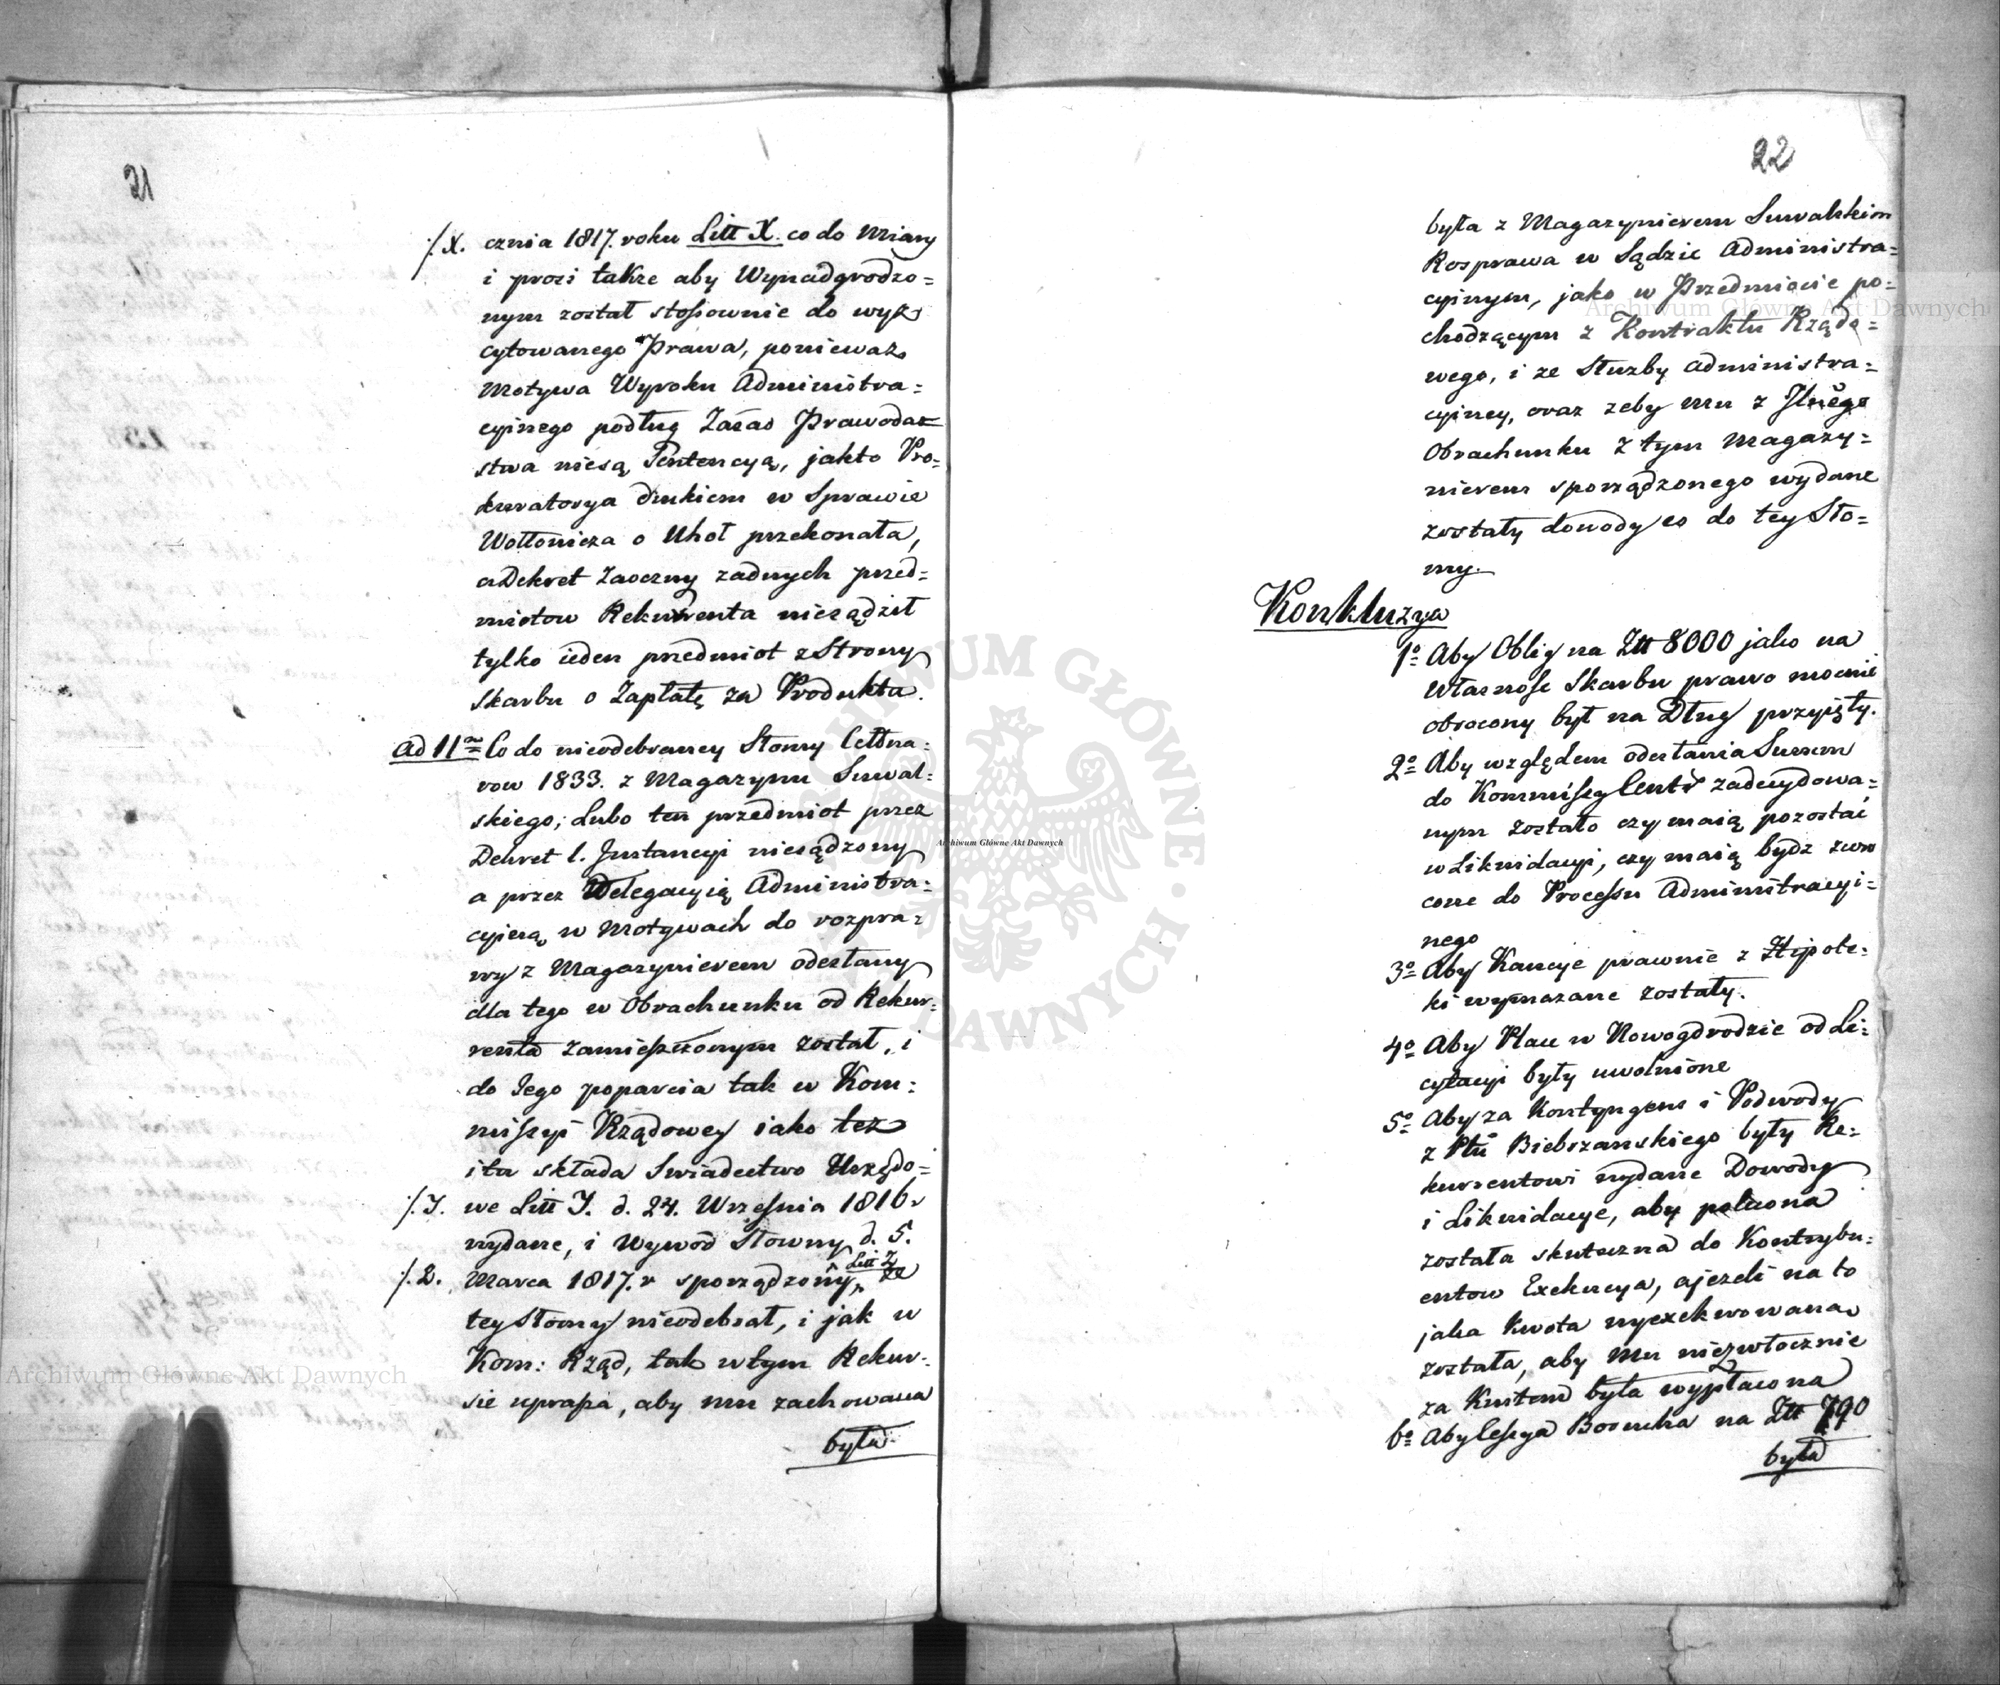 21
:/X. cznia 1817. roku Litt X. co do Miary
i prosi także aby Wynadgrodzo=
nym został stosownie do wyż
cytowanego Prawa, ponieważ
Motywa Wyroku Administra=
cyinego podług Zasad Prawodaw
stwa niesą Sentencyą, jakto Pro=
kuratorya drukiem w Sprawie
Wołłowicza o Uhoł przekonała,
a Dekret Zaoczny zadnych przed=
miotow Rekurrenta niesądził
tylko ieden przedmiot z Strony
Skarbu o Zapłatę za Produkta.
Ad 11m Co do nieodebraney Słomy Cettna=
row 1833. z Magazynu Suwal=
skiego; Lubo ten przedmiot przez
Dekret 1. Instancyi niesądzony
a przez Delegacyią Administra=
cyiną w Motywach do rozpra=
wy z Magazynierem odesłany
dla tego w Obrachunku od Rekur=
renta zamieszczonym został, i
do Jego poparcia tak w Kom=
missyi Rządowey iako też
i tu składa Swiadectwo Urzędo=
/.Y. we Litt Y. d. 24. Wrzesnia 1816 r
wydane, i Wywod Słowny d. 5.
/.Z. Marca 1817. r sporządzony Litt Z. że
tey Słomy nieodebrał, i jak w
Kom: Rząd, tak w tym Rekur=
sie uprasza, aby mu zachowana
była
22
była z Magazynierem Suwalskim
Rosprawa w Sądzie Administra=
cyinym, jako w Przedmiocie po=
chodzącym z Kontraktu Rządo=
wego, i ze Służby administra=
cyiney, oraz zeby mu z
Obrachunku z tym Magazy=
nierem sporządzonego wydane
zostały dowody co do tey Sło=
my.
Konkluzya
1o Aby Oblig na Złł 8000 jako na
Własność Skarbu prawo mocnie
obrocony był na Dług przyięty.
2o Aby względem odesłania Summ
do Kommissyi Centr zadecydowa=
nym zostało czy maią pozostać
w Likwidacyi, czy maią bydz zwro
cone do Processu Administracyi=
nego
3o Aby Kaucye prawnie z Hipote=
ki wymazane zostały.
4o Aby Plac w Nowogrodzie od Li=
cytacyi były uwolnione
5o Aby za Kontyngens i Podwody
z Ptu Biebrzanskiego były Re=
kurrentowi wydane Dowody
i Likwidacye, aby polecona
została skuteczna do Kontrybu=
entow Exekucya, a jezeli na to
jaka Kwota wyexekwowana
została, aby Mu niezwłocznie
za Kwitem była wypłacona
6o Aby Cessya Borucha na Złł 790
była